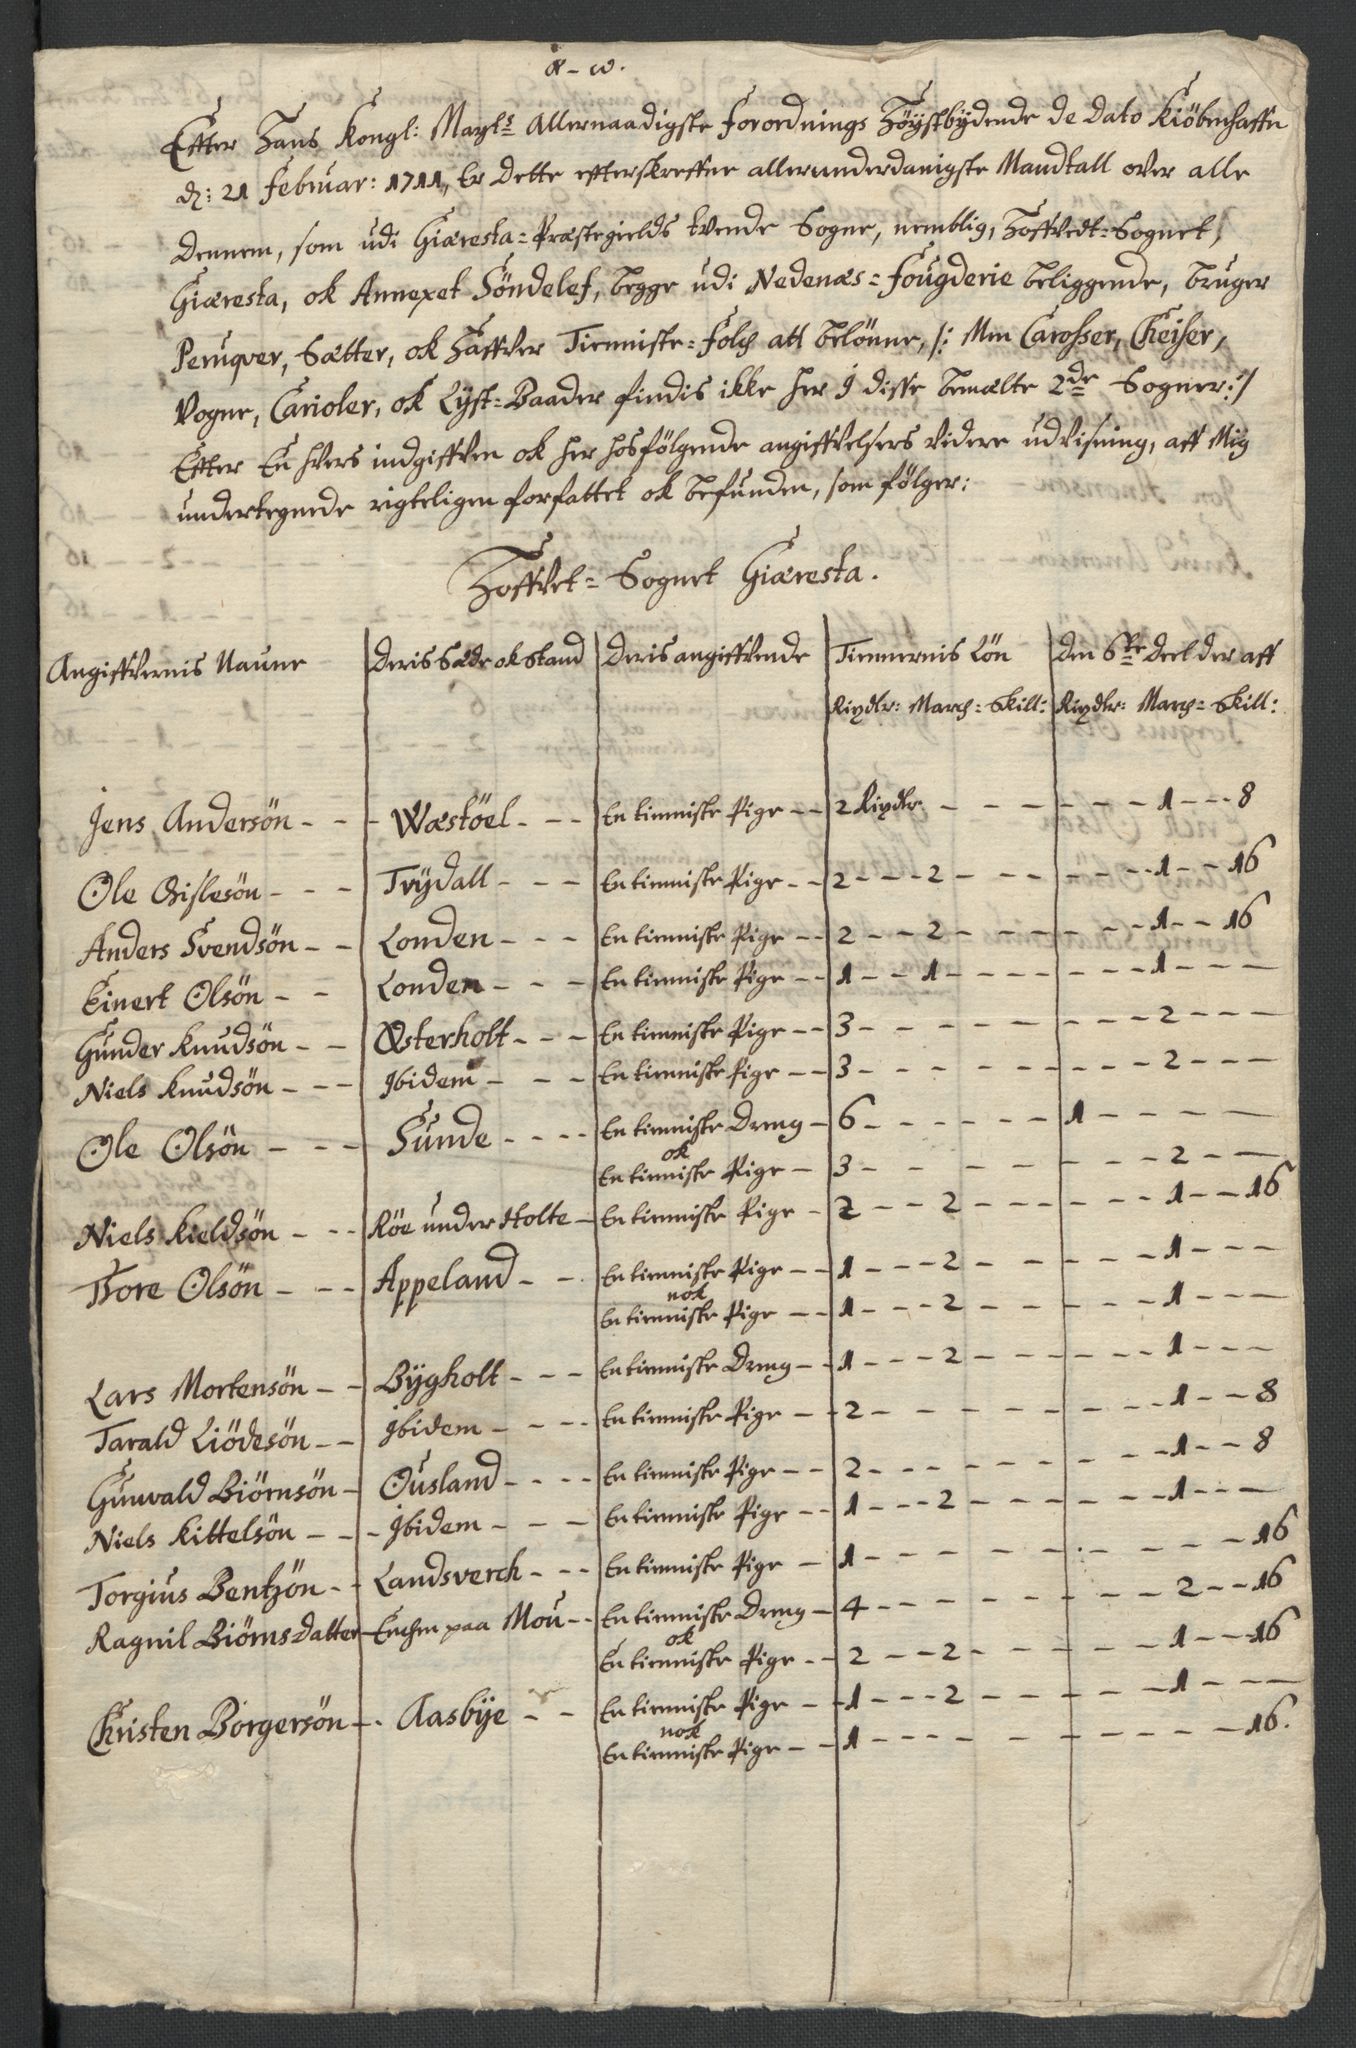 α - ω.
Efter Hans Kongl: Mayts Allernaadigste Forordnings Höystbydende de Dato Kiöbenhaffn
d: 21 Februar: 1711, Er dette efterskreffne allerunderdanigste Mandtall over alle
dennem, som udi Giæresta=Præstegields tvende Sogne, nemblig, Hoffvedt=Sognet,
Giæresta, ok Annexet Söndelef, begge udi Nedenæs=Fougderie beliggende, bruger
Peruqver, Sætter, ok Haffver Tienniste=Folch att belönne, /: Men Carosser, Cheiser,
Vogne, Carioler, ok Lyst=Baader findis ikke her i disse bemælte 2de Sogner :/
Efter En hvers indgiffven ok her hosfölgende angiffvelsers videre udvisning, aff Mig
undertegnede rigteligen forfattet ok befunden, som fölger:
Hoffvet=Sognet Giæresta.
Angiffvernis Naune Deris Sæde ok Stand Deris angiffvende Tiennernis Lön Den 6te deel der aff
Rixdlr: March: Skill: Rixdlr: March: Skill:
Jens Andersön - - - Wæstöel - - - En tienniste Pige - - 2 Rixdlr. - - - - - - 1 - - - 8
Ole Gislesön - - - Trydall - - - En tienniste Pige - - 2 - - - 2 - - - - - - 1 - - 16
Anders Svendsön - - Londen - - - En tienniste Pige - - 2 - - 2 - - - - - - 1 - - 16
Einert Olsön - - Londen - - - En tienniste Pige - - 1 - - 1 - - - - - - 1 - - -
Gunder Knudsön - - Østerholt - - - En tienniste Pige - - 3 - - - - - - - - 2 - - -
Niels Knudsön - - - Ibidem - - - En tienniste Pige - - 3 - - - - - - - - 2 - - -
Ole Olsön - - - Sunde - - - - En tienniste Dreng - 6 - - - - - - 1 - - - -
ok
En tienniste Pige - 3 - - - - - - - 2 - -
Niels Kieldsön - - - Röe under Holte - En tienniste Pige - 2 - - 2 - - - - - - 1 - - 16
Tore Olsön - - - Appeland - - En tienniste Pige - - 1 - - - 2 - - - - - 1 - - -
nok
En tienniste Pige - - 1 - - - 2 - - - - - - 1 - - -
Lars Mortensön - - Bygholt - - - En tienniste Dreng - - 1 - - - 2 - - - - - - 1 - - -
Tarald Liödesön - - Ibidem - - - - En tienniste Pige - - 2 - - - - - - - - - 1 - - 8
Gunvald Biörnsön - Ousland - - - - En tienniste Pige - - 2 - - - - - - - - - 1 - - 8
Niels Kittelsön - - - Ibidem - - - En tienniste Pige - - 1 - - - 2 - - - - - - 1 - - -
Torgius Bentzön - - Landsverch - - - En tienniste Pige - 1 - - - - - - - - - - 16
Ragnil Biörnsdatter - Enchen paa Mou - - En tienniste Dreng - 4 - - - - - - - - 2 - - 16
ok
En tienniste Pige - - 2 - - 2 - - - - - - 1 - - 16
Christen Borgersön - - Aasbÿe - - En tienniste Pige - - 1 - - - 2 - - - - - 1 - - -
nok
En tienniste Pige - - 1 - - - - - - - - - - 16.